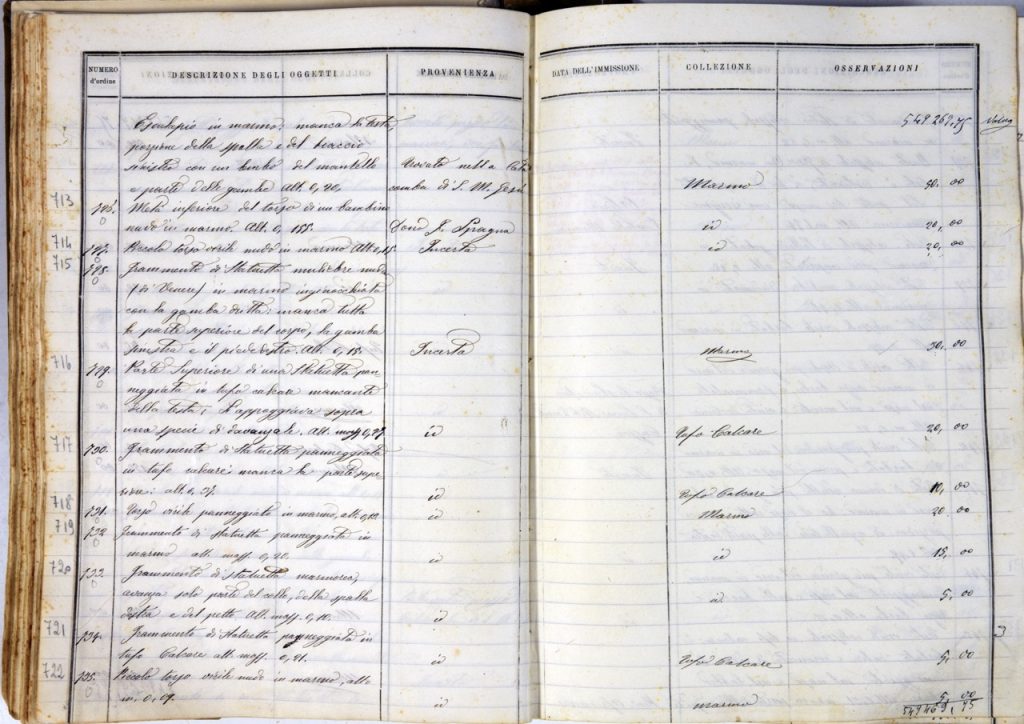 NUMERO d'ordine DESCRIZIONE DEGLI OGGETTI PROVENIENZA DATA DELL'IMMISSIONE COLLEZIONE OSSERVAZIONI
Esculapio in marmo; manca la testa, 549 269,75
porzione della spalla e del braccio
sinistro con un lembo del mantello Trovato nella Cata
e parte delle gambe Alt. 0,20. comba di S. M. Gesù Marmo 50,00
713
Metà inferiore del torso di un bambino
nudo in marmo. Alt. 0,155. Dono Spagna id 20,00
714 Piccolo torso virile nudo in marmo Alt. 0,15 Incerta id 20,00
715 Frammento di Statuetta muliebre nuda
(di Venere) in marmo inginocchiata
con la gamba dritta; manca tutta
la parte superiore del corpo, la gamba
sinistra e il piede destro. Alt. 0,15. Incerta Marmo 30,00
716 Parte Superiore di una Statuetta pan
neggiata in tufo calcare mancante
della testa; S'appoggiava sopra
una specie di davanzale. Alt. mass. 0,27. id Tufo Calcare 20,00
717 730. Frammento di Statuetta panneggiata
in tufo calcare; manca la parte supe
riore: alt. 0,27. id Tufo Calcare 10,00
718 731. Torso virile panneggiato in marmo, alt. id Marmo 20,00
719 732 Frammento di Statuetta panneggiata in
marmo alt. mass. 0,20. id id 15,00
720 733. Frammento di Statuetta marmorea,
avanza solo parte del collo, della spalla
destra e del petto Alt. mass. 0,10. id id 5,00
721 734. Frammento di Statuetta panneggiata in 3
tufo Calcare alt. mass. 0,21. id Tufo Calcare 5,00
722 735. Piccolo torso virile nudo in marmo, alt.
0,09. id marmo 5,00
549 469,75